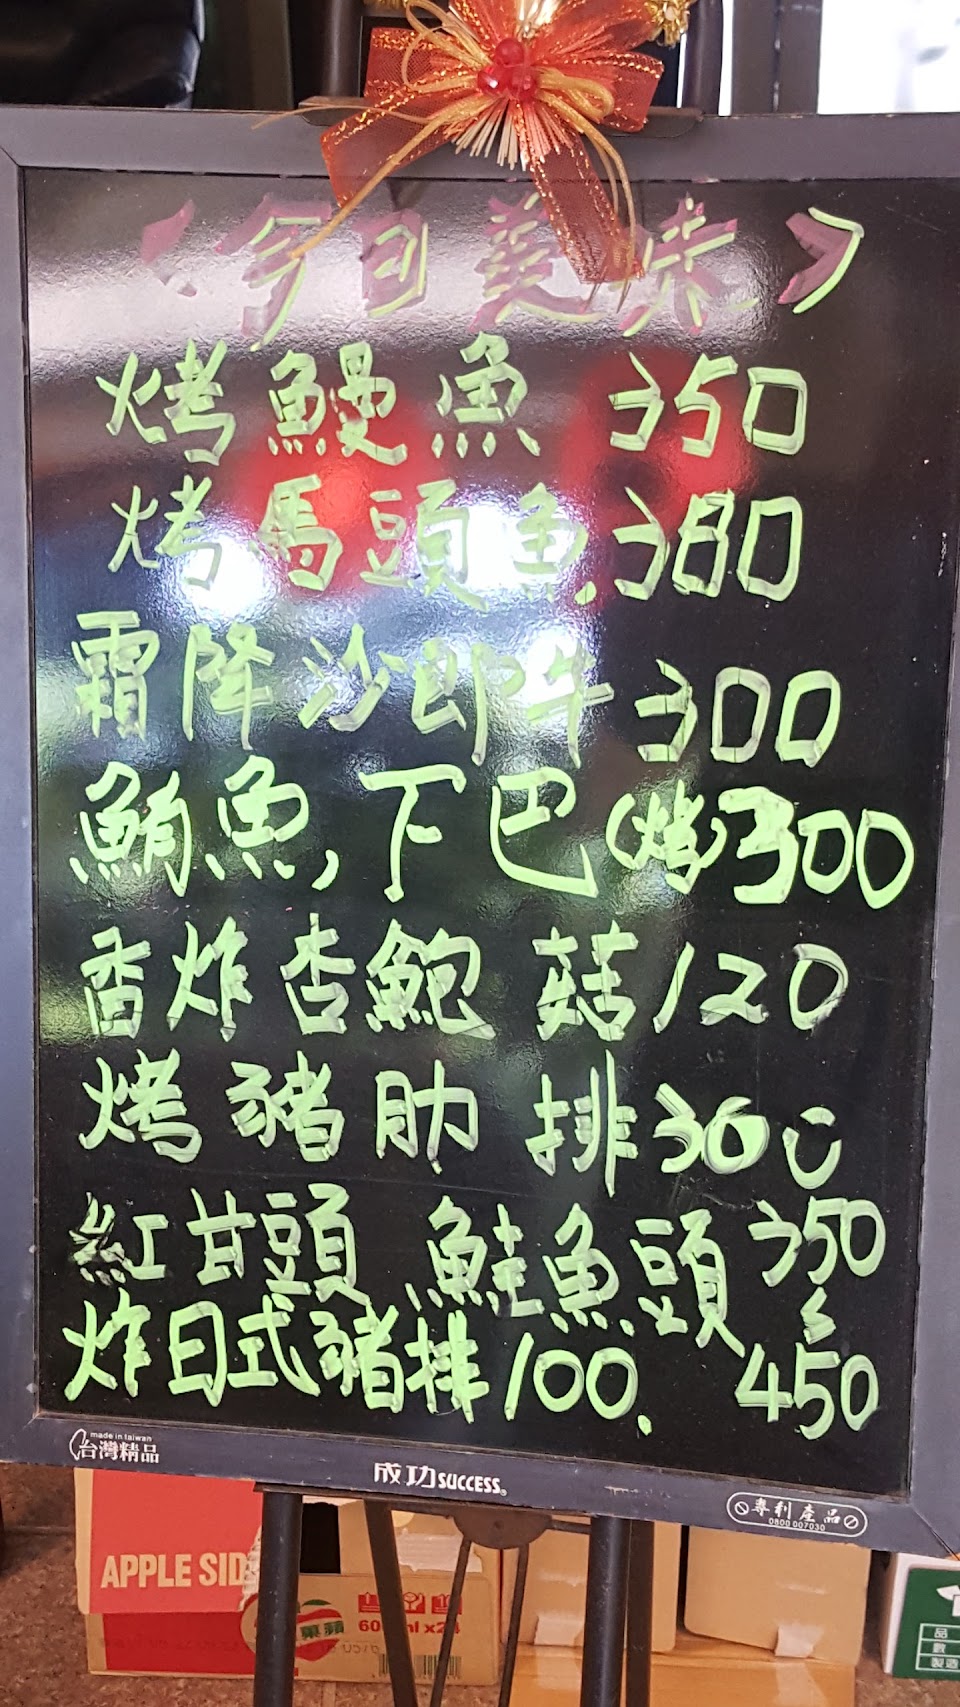 <今日美味>
烤鰻魚 350
烤馬頭魚 380
霜降沙郎牛 300
鮪魚下巴(烤)300
香炸杏鮑菇120
烤豬肋排300
紅甘頭 鮭魚頭 350
炸日式豬排100. 450
made in taiwan
台灣精品
成功SUCCESS®
專利產品
0800 007030
APPLE SID
蘋菓
600ml x24
品
數
製造